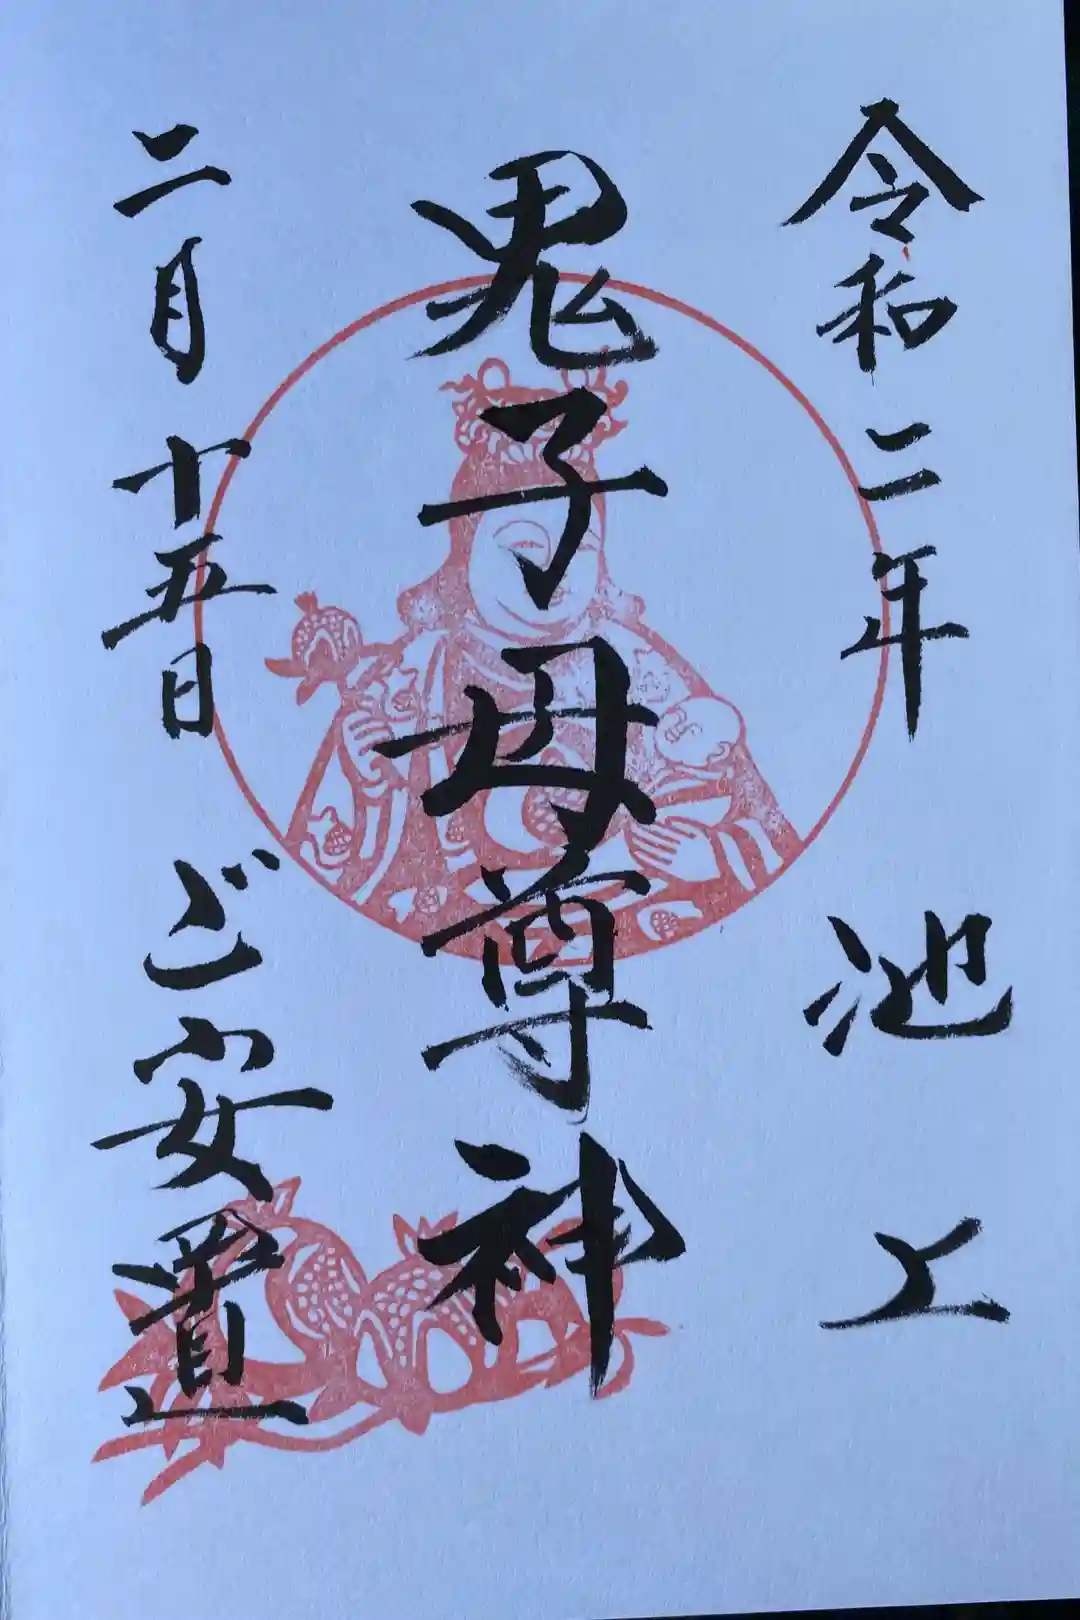 令和二年 池上
鬼子母尊神
二月十五日 ご安置